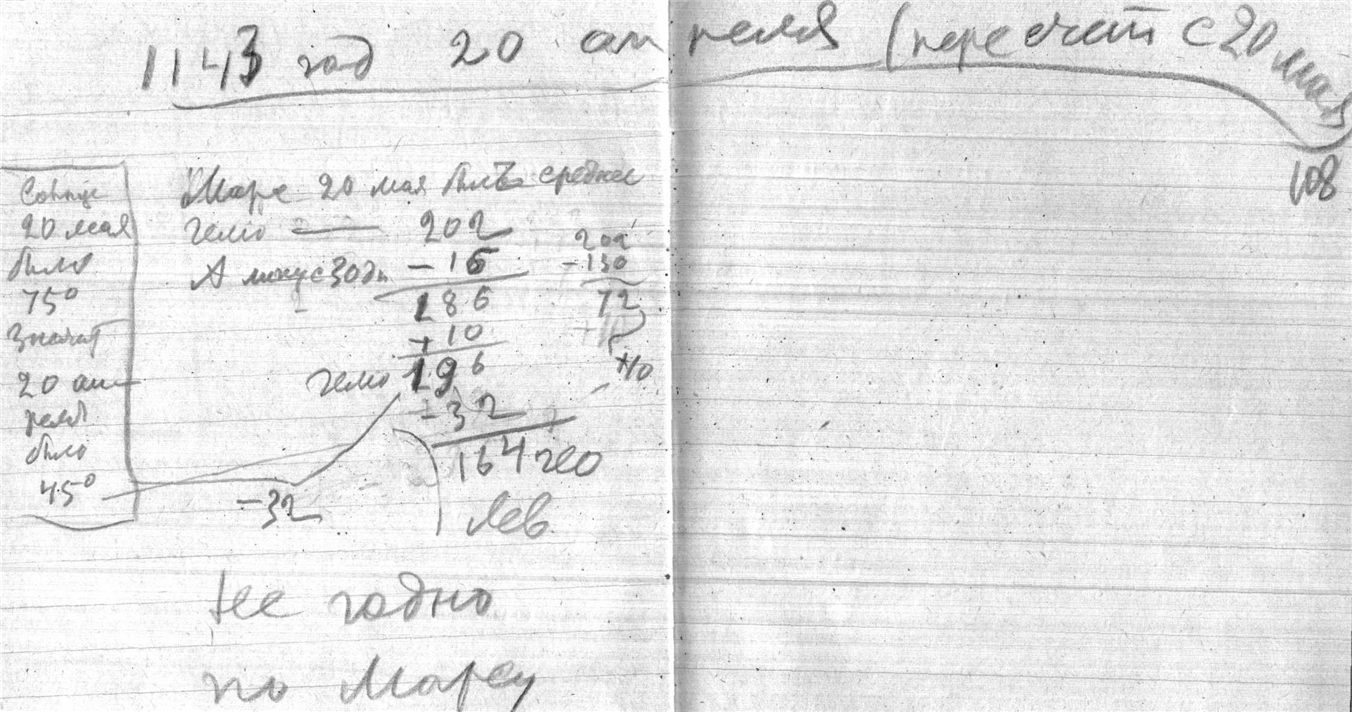 1143 год 20 апреля (пересчет с 20 мая
108
Солнце
20 мая
было
75°
Значит
20 ап
реля
было
45°
Марс 20 мая былъ среднее
гелио — 202
А минус 30 дн. – 16
186
+10
гелио 196
– 32
164 гео
Лев
202
– 130
72
– 32
Не годно
по Марсу